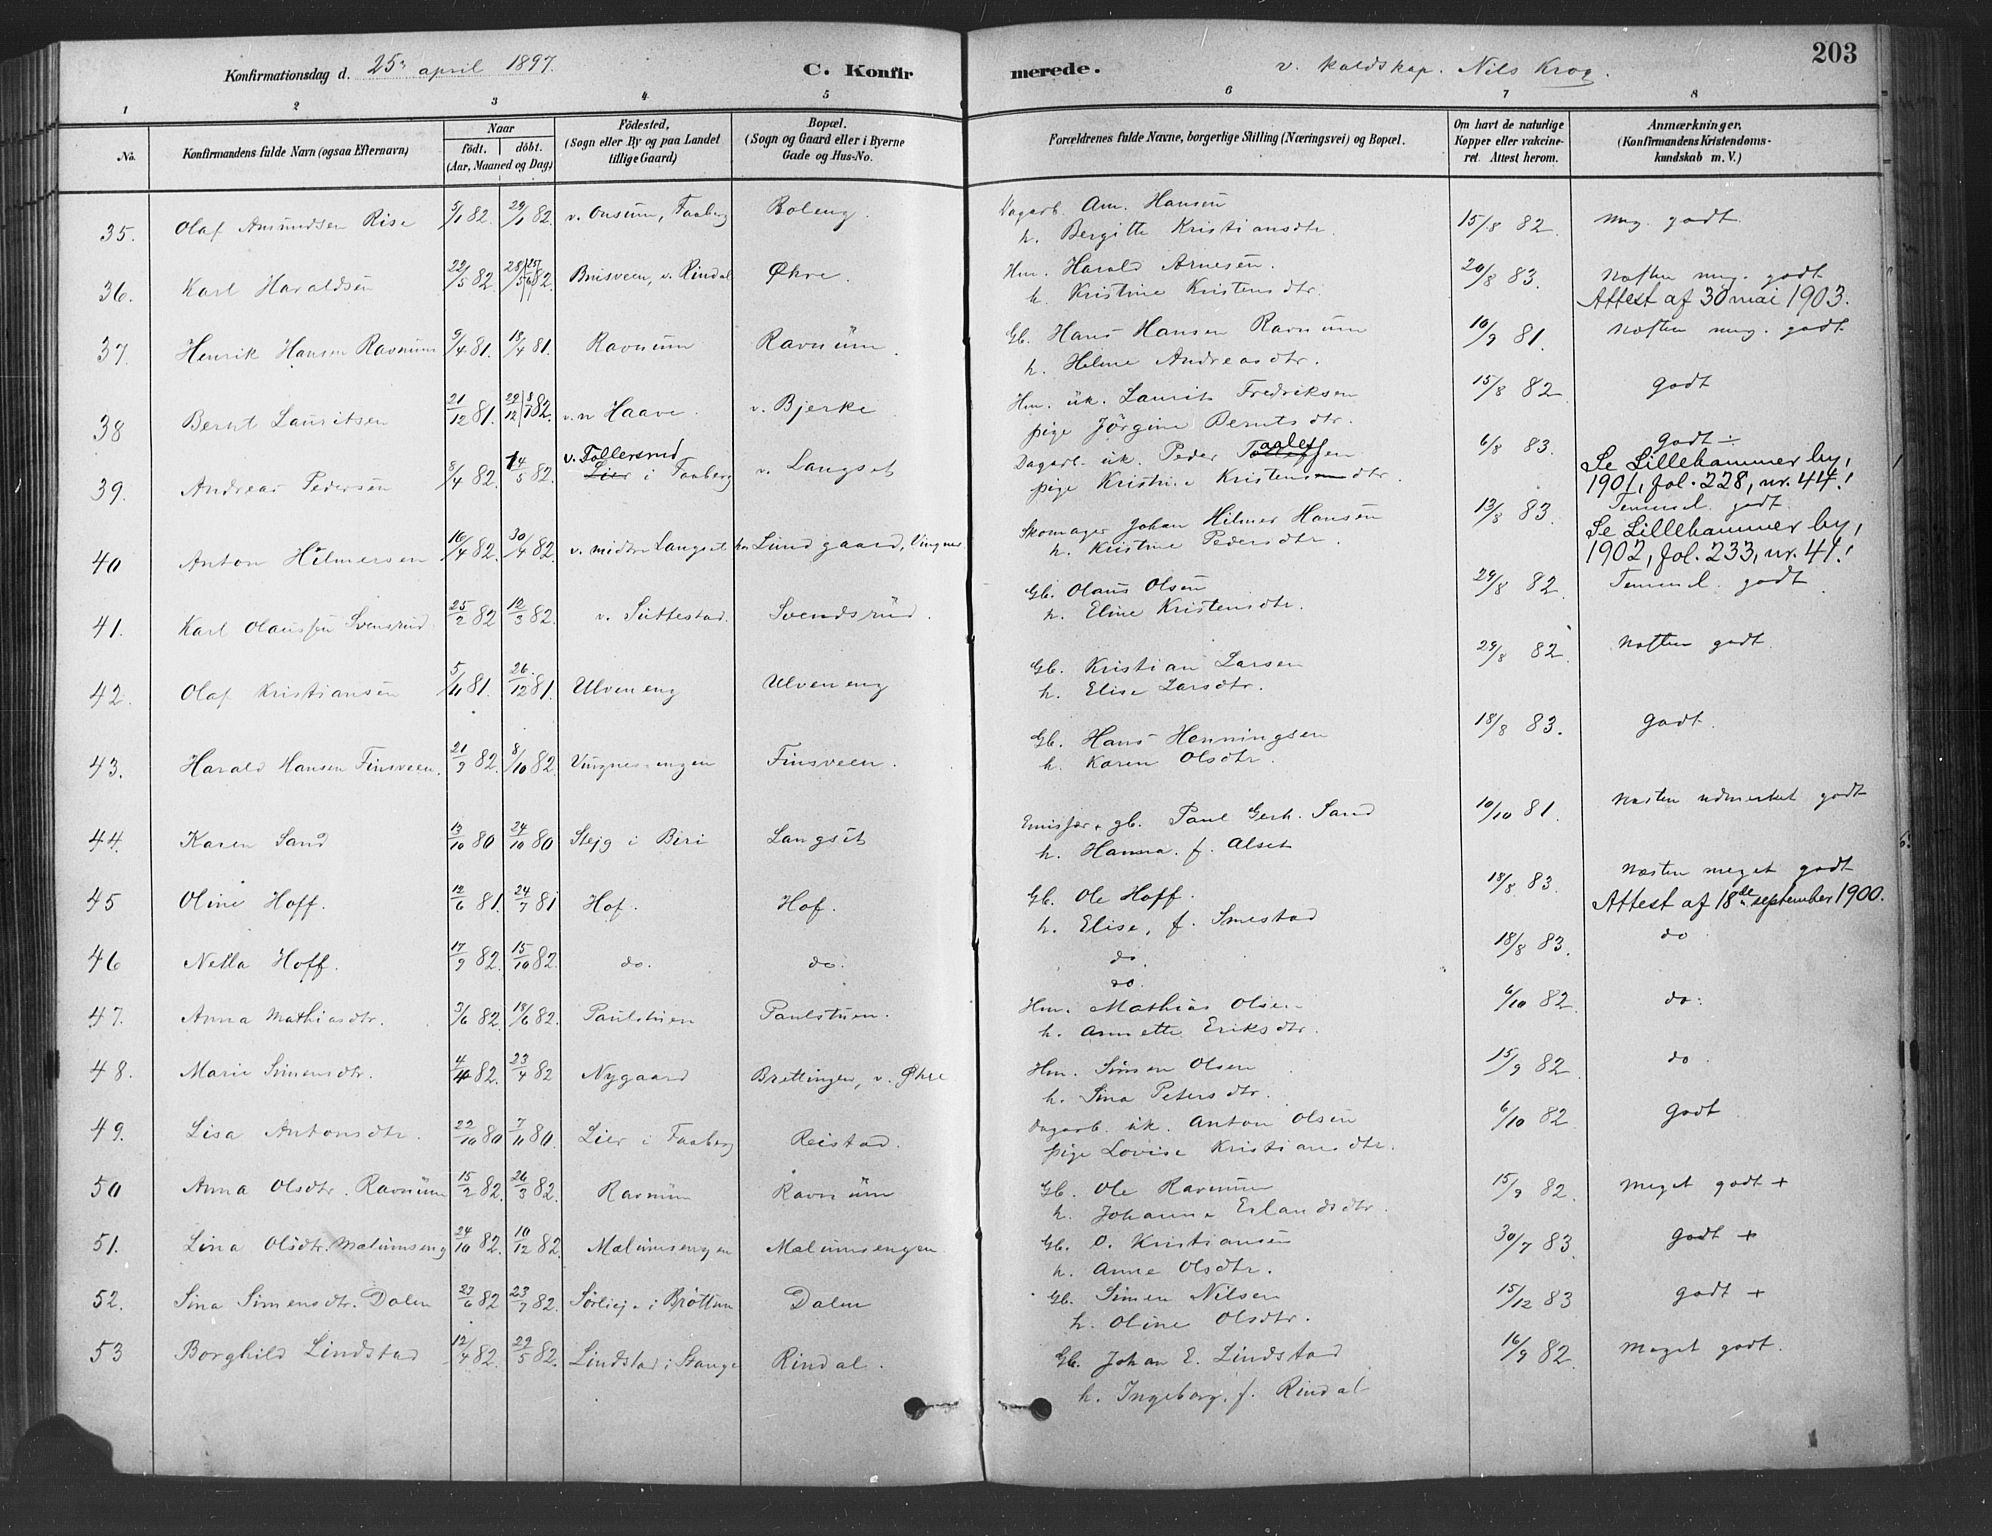 203
Konfirmationsdag d. 25de april 1897. C. Konfirmerede. v. kaldskap. Nils Krog.
1 2 3 4 5 6 7 8
No. Konfirmandens fulde Navn (ogsaa Efternavn) Naar födt. döbt. (Aar, Maaned og Dag) Födested, (Sogn eller By og paa Landet tillige Gaard) Bopæl. (Sogn og Gaard eller i Byerne Gade og Hus-No. Forældrenes fulde Navne, borgerlige Stilling (Næringsvei) og Bopæl. Om havt de naturlige Kopper eller vakcineret. Attest herom. Anmærkninger. (Konfirmandens Kristendomskundskab m. V.)
35. Olaf Amundsen Rise 5/1 82 29/1 82. v. Onsum, Faaberg Boleng. Dagarb. Am. Hansen 15/8 82. meg. godt
h. Bergitte Kristiansdtr.
36. Karl Haraldsen 22/5 82 28/5 82. Brisveen, v. Rindal Økre. Hm. Harald Arnesen. 20/8 83. Næsten meg. godt
h. Kristine Kristensdtr. Attest af 30 mai 1903.
37. Henrik Hansen Ravnum 9/4 81. 18/4 81. Ravnum Ravnum. Gb. Hans Hansen Ravnum 10/9 81. Næsten meg. godt
h. Helene Andreasdtr.
38 Bernt Lauritsen 21/12 81. v. n Haave. v. Bjerke Hm. uk. Laurits Fredriksen 15/8 82 Godt
pige Jörgine Berntsdtr.
39. Andreas Pedersen 8/4 82 14/5 82. v. Tollersrud Lier i Faaberg v. Langset Dagarb. uk. Peder 6/8 83. Godt ÷
pige Kristine Kristensdtr. Se Lillehammer by, 1901, fol. 228, nr. 44!
40 Anton Hilmersen 16/4 82. 30/4 82. v. midtre Langset Lundgaard, Vingnes Skomager Johan Hilmer Hansen 13/8 83. Temmel. godt.
h. Kristine Pedersdtr. Se Lillehammer by, 1902, fol. 233, nr. 41!
41. Karl Olaussen Svensrud 25/2 82 12/3 82. v. Suttestad. Svendsrud. Gb. Olaus Olsen 29/8 82. Temmel. godt
h. Eline Kristensdtr.
42. Olaf Kristiansen 5/11 81. 26/12 81. Ulveneng Ulveneng Gb. Kristian Larsen 29/8 82. Næsten godt.
h. Elise Larsdtr.
43. Harald Hansen Finsveen. 21/9 82. 8/10 82. Vingnesengen Finsveen. Gb. Hans Henningsen 18/8 83. Godt.
h. Karen Olsdtr.
44. Karen Sand 13/10 80 24/10 80 Stejg i Biri Langset Gb. Paul Gerh. Sand 10/10 81. Næsten udmerket godt
h. Hanna. f. Alset
45 Oline Hoff. 12/6 81. 24/7 81 Hof. Hof. Gb. Ole Hoff. 18/8 83. Næsten meget godt
h. Elise, f. Smestad Attest af 18de september 1900.
46 Netta Hoff. 17/9 82. 15/10 82. do. do. do. 18/8 83. do
do.
47. Anna Mathiasdtr. 3/6 82. 18/6 82. Paulstuen Paulstuen. Hm. Mathias Olsen 6/10 82. do.
h. Annette Eriksdtr.
48. Marie Simensdtr. 4/4 82. 23/4 82 Nygaard Brettingen, v. Økre Hm. Simen Olsen 15/9 82. do.
h. Sina Petersdtr.
49. Lisa Antonsdtr. 22/10 80 7/11 80. Lier i Faaberg Reistad. Dagarb. uk. Anton Olsen 6/10 82. Godt
pige Lovise Kristiansdtr.
50 Anna Olsdtr. Ravnum 15/2 82. 26/3 82. Ravnum Ravnum Gb. Ole Ravnum 15/9 82. Meget godt +
h. Johanne Erlandsdtr.
51. Lina Olsdtr. Mælumseng 24/10 82. 10/12 82. Mælumsengen Mælumsengen Gb. O. Kristiansen 30/7 83. godt +
h. Anne Olsdtr.
52. Sina Simensdtr. Dalen 23/6 82 23/7 82. Sørlieje i Brøttum Dalen Gb. Simen Nilsen 15/12 83 godt +
h. Oline Olsdtr.
53 Borghild Lindstad 12/4 82. 29/5 82. Lindstad i Stange Rindal. Gb. Johan E. Lindstad 16/9 82. Meget godt.
h. Ingeborg, f. Rindal